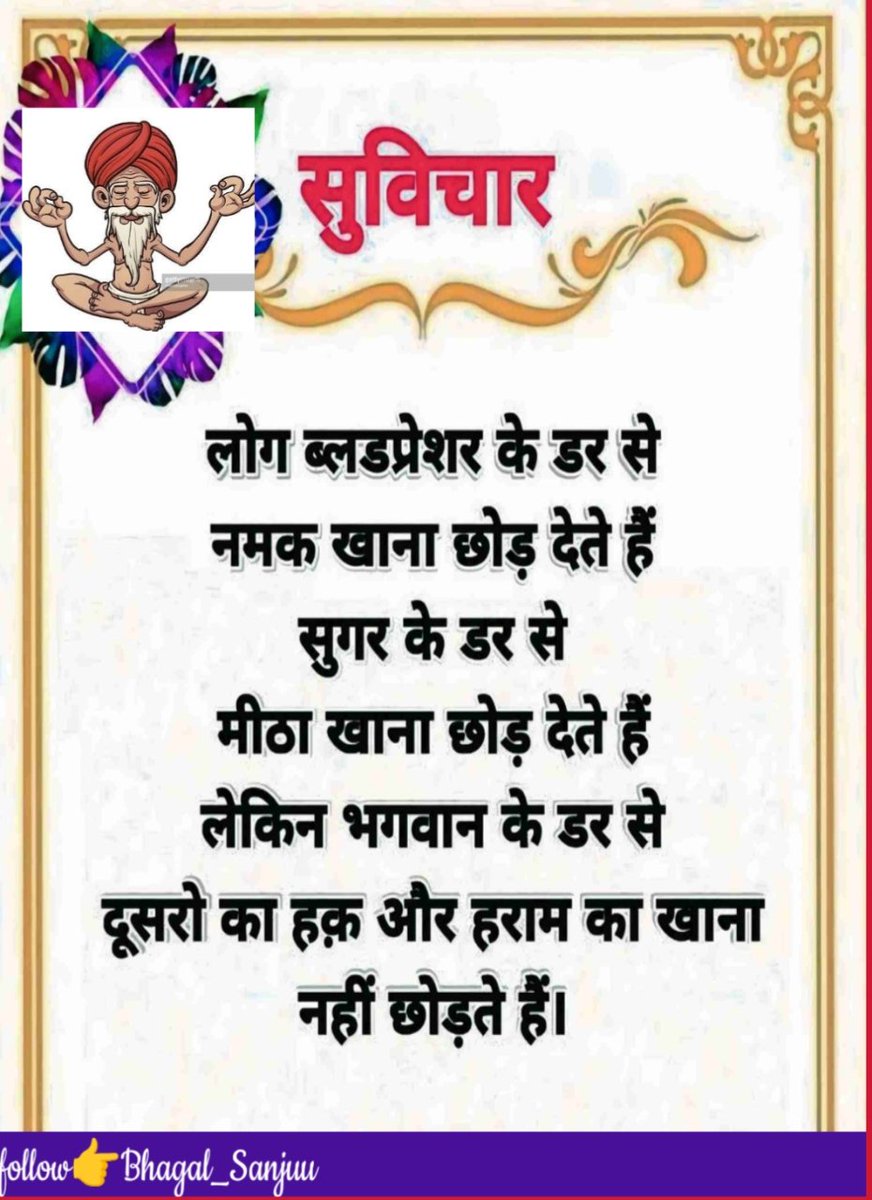 सुविचार
लोग ब्लडप्रेशर के डर से
नमक खाना छोड़ देते हैं
सुगर के डर से
मीठा खाना छोड़ देते हैं
लेकिन भगवान के डर से
दूसरो का हक़ और हराम का खाना
नहीं छोड़ते हैं।
follow👉Bhagal_Sanjuu